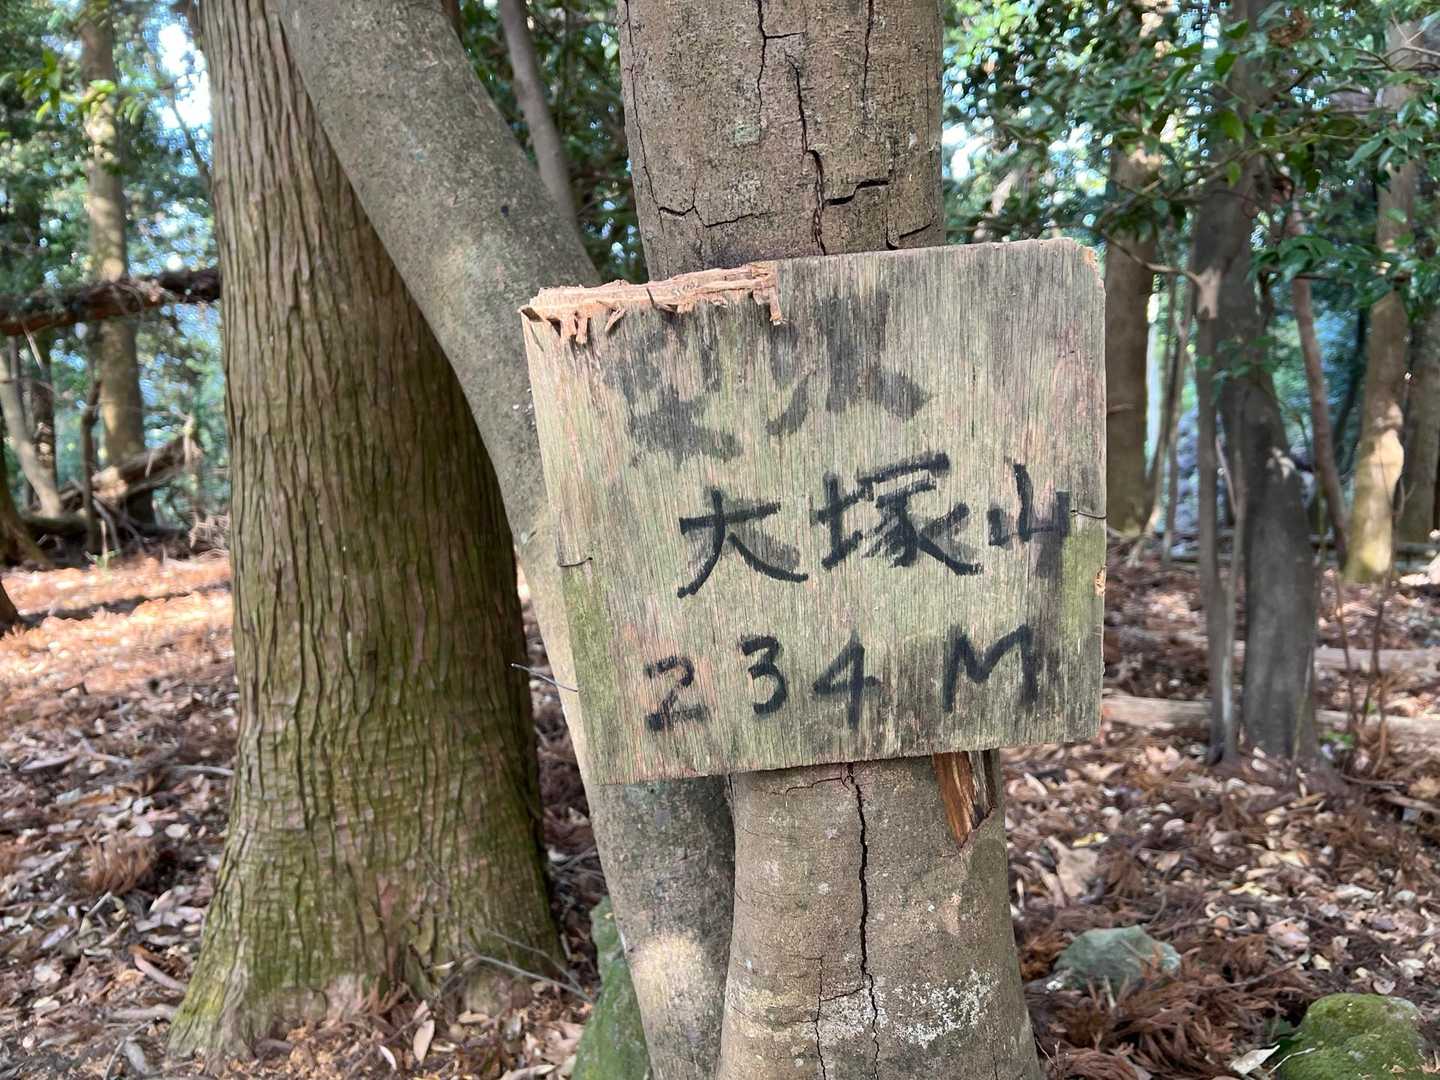 大塚山
234M